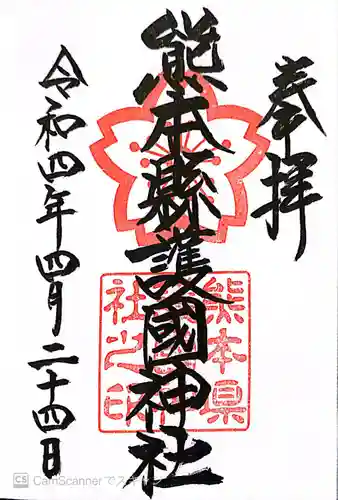 奉拝
熊本縣護國神社
令和四年四月二十四日
CS CamScanner でスキャン